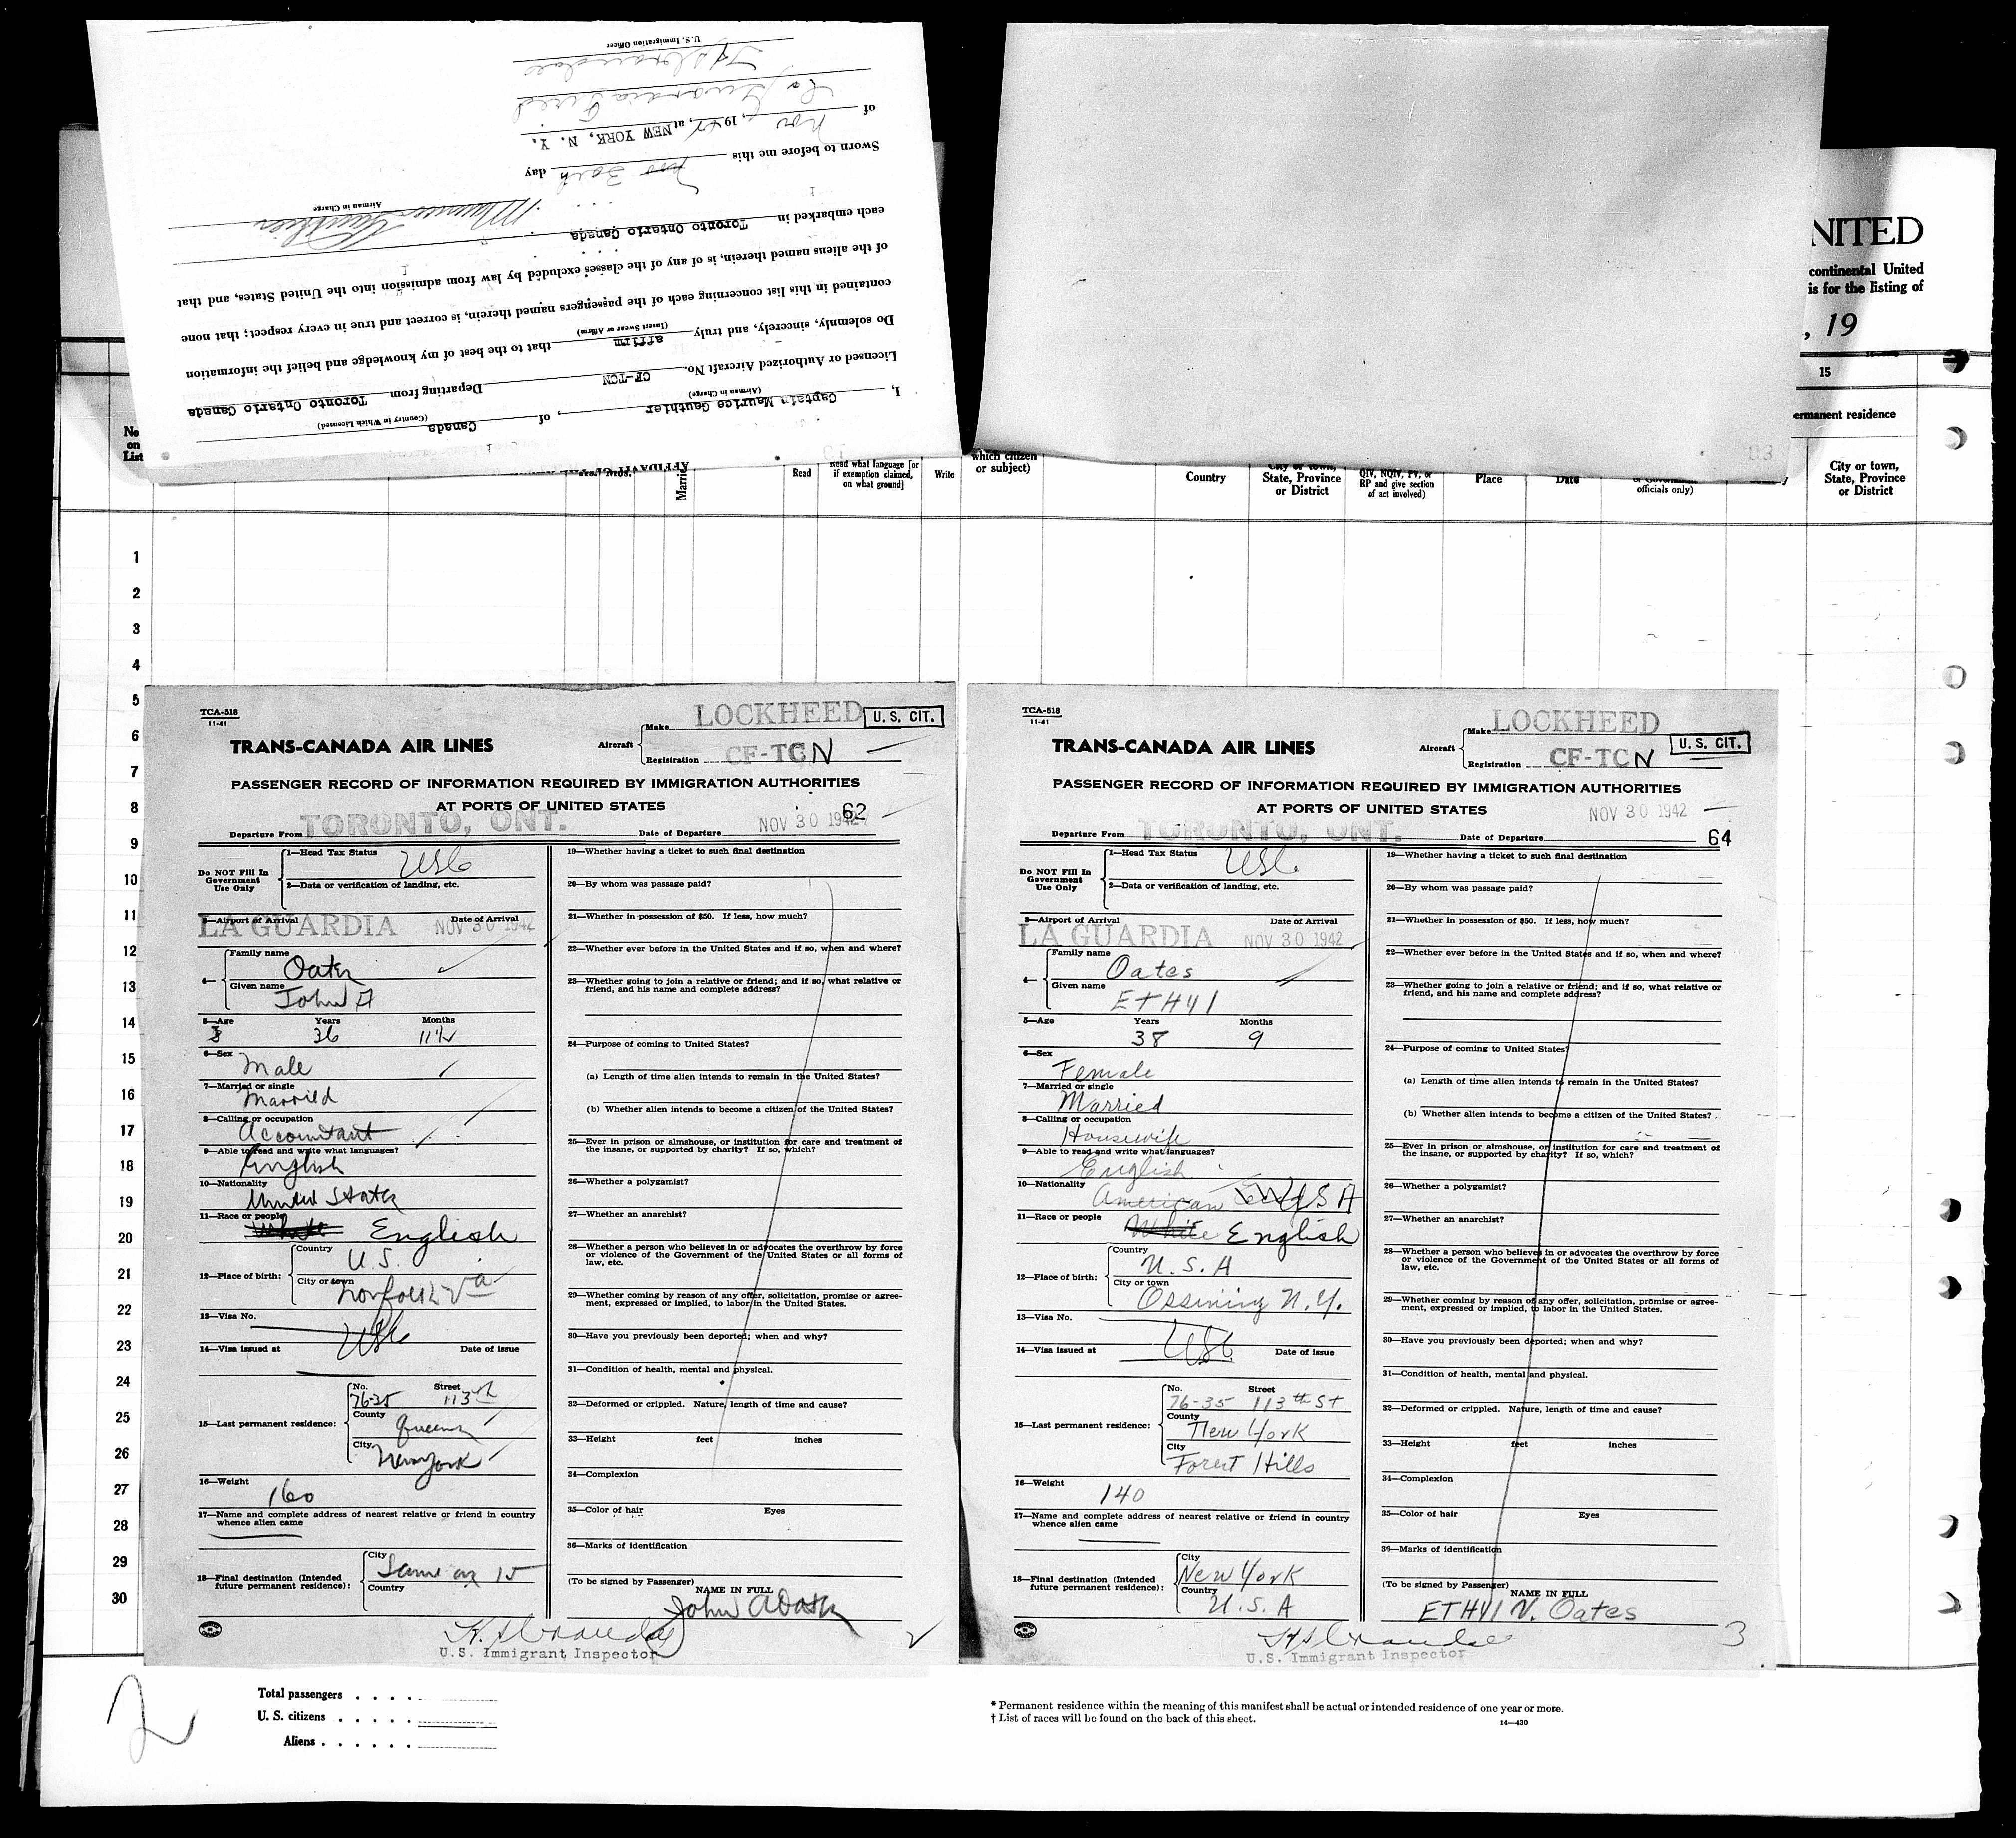 I, Captain Maurice Gauthier, of Canada
(Airman in Charge) (Country in Which Licensed)
Licensed or Authorized Aircraft No. CF-TCN Departing from Toronto Ontario Canada
Do solemnly, sincerely, and truly affirm that to the best of my knowledge and belief the information
(Insert Swear or Affirm)
contained in this list concerning each of the passengers named therein, is correct and true in every respect; that none
of the aliens named therein, is of any of the classes excluded by law from admission into the United States, and that
each embarked in Toronto Ontario Canada
Maurice Gauthier
Airman in Charge
Sworn to before me this 30th day
of Nov, 1942, at NEW YORK, N. Y.
La Guardia Field
U. S. Immigration Officer
NITED
continental United
is for the listing of
, 19
15
ermanent residence
No on List
Read
Read what language [or if exemption claimed, on what ground]
Write
which citizen or subject)
Country
City or town, State, Province or District
QIV, NQIV, PV, or RP and give section of act involved)
Place
Date
officials only)
City or town, State, Province or District
1
2
3
4
5
6
7
8
9
10
11
12
13
14
15
16
17
18
19
20
21
22
23
24
25
26
27
28
29
30
TCA-518
11-41
TRANS-CANADA AIR LINES
Aircraft
Make LOCKHEED
U. S. CIT.
Registration CF-TCN
PASSENGER RECORD OF INFORMATION REQUIRED BY IMMIGRATION AUTHORITIES
AT PORTS OF UNITED STATES
62
Departure From TORONTO, ONT. Date of Departure NOV 30 1942
Do NOT Fill In Government Use Only
1—Head Tax Status USC
2—Data or verification of landing, etc.
3—Airport of Arrival Date of Arrival
LA GUARDIA NOV 30 1942
4—
Family name Oates
Given name John A
5—Age Years Months
36 11½
6—Sex Male
7—Married or single Married
8—Calling or occupation Accountant
9—Able to read and write what languages? English
10—Nationality United States
11—Race or people White English
12—Place of birth:
Country U.S.
City or town Norfolk Va
13—Visa No.
USC
14—Visa issued at Date of issue
15—Last permanent residence:
No. Street
76-35 113th
County Queens
City New York
16—Weight 160
17—Name and complete address of nearest relative or friend in country whence alien came
18—Final destination (Intended future permanent residence):
City Same as 15
Country
19—Whether having a ticket to such final destination
20—By whom was passage paid?
21—Whether in possession of $50. If less, how much?
22—Whether ever before in the United States and if so, when and where?
23—Whether going to join a relative or friend; and if so, what relative or friend, and his name and complete address?
24—Purpose of coming to United States?
(a) Length of time alien intends to remain in the United States?
(b) Whether alien intends to become a citizen of the United States?
25—Ever in prison or almshouse, or institution for care and treatment of the insane, or supported by charity? If so, which?
26—Whether a polygamist?
27—Whether an anarchist?
28—Whether a person who believes in or advocates the overthrow by force or violence of the Government of the United States or all forms of law, etc.
29—Whether coming by reason of any offer, solicitation, promise or agreement, expressed or implied, to labor in the United States.
30—Have you previously been deported; when and why?
31—Condition of health, mental and physical.
32—Deformed or crippled. Nature, length of time and cause?
33—Height feet inches
34—Complexion
35—Color of hair Eyes
36—Marks of identification
(To be signed by Passenger)
NAME IN FULL
John A Oates
U.S. Immigrant Inspector
2
TCA-518
11-41
TRANS-CANADA AIR LINES
Aircraft
Make LOCKHEED
U. S. CIT.
Registration CF-TCN
PASSENGER RECORD OF INFORMATION REQUIRED BY IMMIGRATION AUTHORITIES
AT PORTS OF UNITED STATES
NOV 30 1942
Departure From TORONTO, ONT. Date of Departure
64
Do NOT Fill In Government Use Only
1—Head Tax Status USC
2—Data or verification of landing, etc.
3—Airport of Arrival Date of Arrival
LA GUARDIA NOV 30 1942
4—
Family name Oates
Given name ETHYl
5—Age Years Months
38 9
6—Sex Female
7—Married or single Married
8—Calling or occupation Housewife
9—Able to read and write what languages? English
10—Nationality American USA
11—Race or people White English
12—Place of birth:
Country U.S.A
City or town Ossining N.Y.
13—Visa No.
USC
14—Visa issued at Date of issue
15—Last permanent residence:
No. Street
76-35 113th St
County New York
City Forest Hills
16—Weight 140
17—Name and complete address of nearest relative or friend in country whence alien came
18—Final destination (Intended future permanent residence):
City New York
Country U.S.A
19—Whether having a ticket to such final destination
20—By whom was passage paid?
21—Whether in possession of $50. If less, how much?
22—Whether ever before in the United States and if so, when and where?
23—Whether going to join a relative or friend; and if so, what relative or friend, and his name and complete address?
24—Purpose of coming to United States?
(a) Length of time alien intends to remain in the United States?
(b) Whether alien intends to become a citizen of the United States?
25—Ever in prison or almshouse, or institution for care and treatment of the insane, or supported by charity? If so, which?
26—Whether a polygamist?
27—Whether an anarchist?
28—Whether a person who believes in or advocates the overthrow by force or violence of the Government of the United States or all forms of law, etc.
29—Whether coming by reason of any offer, solicitation, promise or agreement, expressed or implied, to labor in the United States.
30—Have you previously been deported; when and why?
31—Condition of health, mental and physical.
32—Deformed or crippled. Nature, length of time and cause?
33—Height feet inches
34—Complexion
35—Color of hair Eyes
36—Marks of identification
(To be signed by Passenger)
NAME IN FULL
ETHYl V. Oates
U.S. Immigrant Inspector
3
2
Total passengers
U. S. citizens
Aliens
* Permanent residence within the meaning of this manifest shall be actual or intended residence of one year or more.
† List of races will be found on the back of this sheet.
14—430